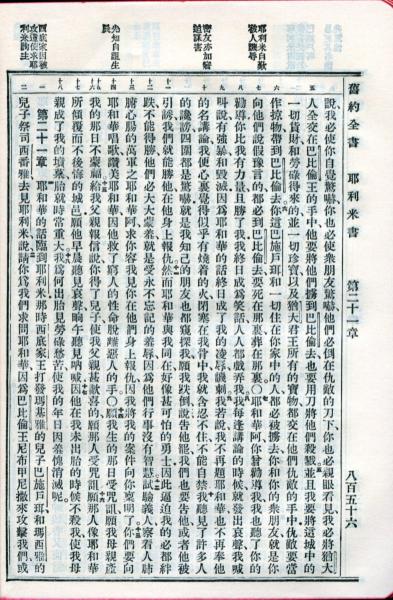 舊約全書　耶利米書　第二十一章　八百五十六
說我必使你自覺驚嚇你也必使衆朋友驚嚇他們必倒在仇敵的刀下你也必親眼看見我必將猶大
五 人全交在巴比倫王的手中他要將他們擄到巴比倫去也要用刀將他們殺戮並且我要將這城中的
一切貨財和勞碌得來的並一切珍寶以及猶大君王所有的寶物都交在他們仇敵的手中仇敵要當
六 作掠物帶到巴比倫去你這巴施戶珥和一切住在你家中的人都必被擄去你和你的衆朋友就是你
七 向他們說假豫言的都必到巴比倫去要死在那裏葬在那裏○耶和華阿你曾勸導我我也聽了你的
耶利米自歎
教人譏辱
八 勸導你比我有力量且勝了我我終日成為笑話人人都戲弄我我每逢講論的時候就發出哀聲我喊
九 叫說有強暴和毀滅因為耶和華的話終日成了我的凌辱譏刺我若說我不再題耶和華也不再奉他
十 的名講論我便心裏覺得似乎有燒着的火閉塞在我骨中我就含忍不住不能自禁我聽見了許多人
密友亦加窺
迫謀害
的讒謗四圍都是驚嚇就是我知己的朋友也都窺探我願我跌倒說告他罷我們也要告他或者他被
十一 引誘我們就能勝他在他身上報仇然而耶和華與我同在好像甚可怕的勇士因此逼迫我的必都絆
十二 跌不能得勝他們必大大蒙羞就是受永不忘記的羞辱因為他們行事沒有智慧試驗義人察看人肺
十三 腑心腸的萬軍之耶和華阿求你容我見你在他們身上報仇因我將我的案件向你稟明了你們要向
十四 耶和華唱歌讚美耶和華因他救了窮人的性命脫離惡人的手○願我生的那日受咒詛願我母親產
先知自詛生
辰
十五 十六 我的那日不蒙福給我父親報信說你得了兒子使我父親甚歡喜的願那人受咒詛願那人像耶和華
十七 所傾覆而不後悔的城邑願他早晨聽見哀聲晌午聽見吶喊因他在我未出胎的時候不殺我使我母
十八 親成了我的墳墓胎就時常重大我為何出胎見勞碌愁苦使我的年日因羞愧消滅呢
一 第二十一章　耶和華的話臨到耶利米那時西底家王打發瑪基雅的兒子巴施戶珥和瑪西雅的
二 兒子祭司西番雅去見耶利米說請你為我們求問耶和華因為巴比倫王尼布甲尼撒來攻擊我們或
西底家因被
攻遣使求耶
利米詢主